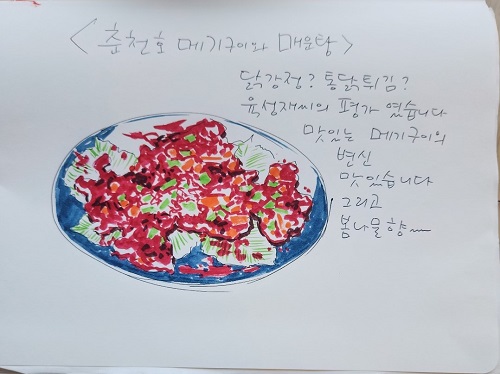 <춘천호 메기구이와 매운탕>
닭강정? 통닭튀김?
육성재씨의 평가 였습니다
맛있는 메기구이의
변신
맛있습니다
그리고
봄나물향~